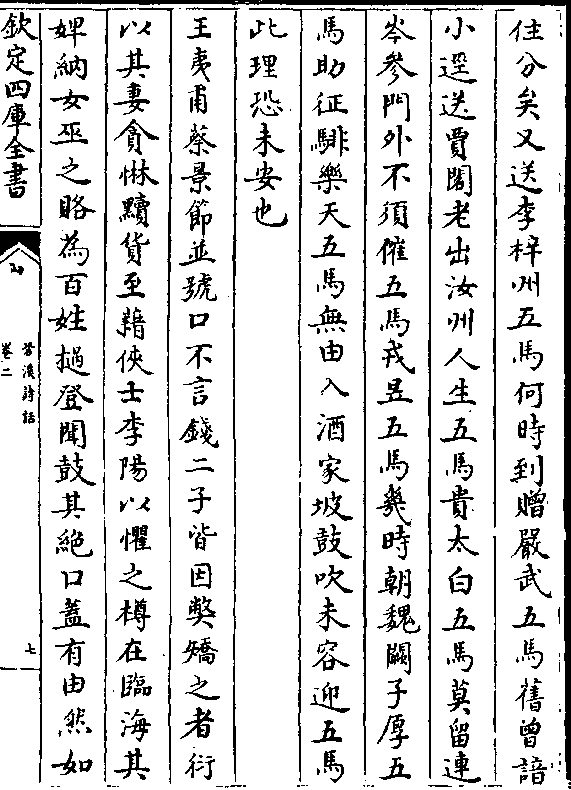 住分矣又送李梓州五馬何時到贈嚴武五馬舊曾諳
小逕送賈閣老出汝州人生五馬貴太白五馬莫留連
岑參門外不須催五馬戎昱五馬幾時朝魏闕子厚五
馬助征騑樂天五馬無由入酒家坡鼓吹未容迎五馬
此理恐未安也
王夷甫蔡景節並號口不言錢二子皆因弊矯之者衍
以其妻貪惏黷貨至藉俠士李陽以懼之樽在臨海其
婢納女巫之賂為百姓撾登聞鼓其絶口蓋有由然如
欽定四庫全書
䂬溪詩話
卷二
七